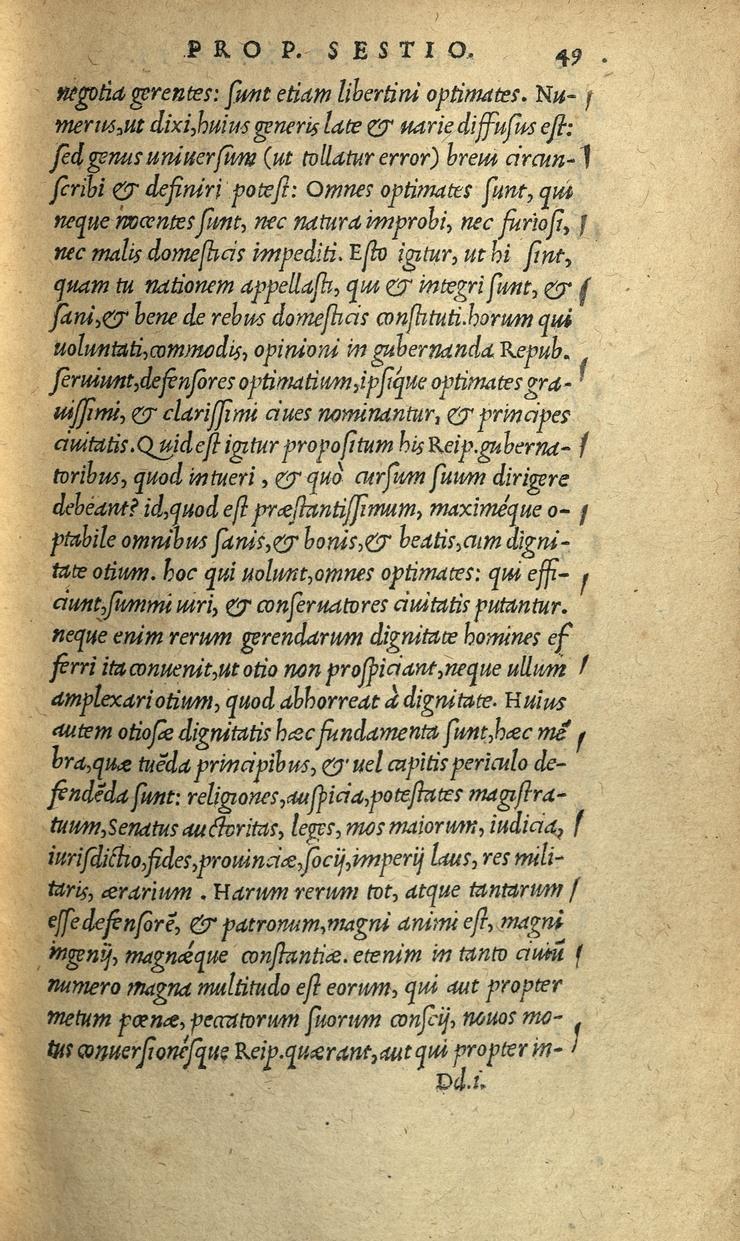 PRO P. SESTIO. 49
negotia gerentes: ſunt etiam libertini optimates. Nu-
merus,ut dixi,huius generis late & uarie diffuſus eſt:
ſed genus uniuerſum (ut tollatur error) breui circun-
ſcribi & definiri poteſt: Omnes optimates ſunt, qui
neque nocentes ſunt, nec natura improbi, nec furioſi,
nec malis domeſticis impediti. Eſto igitur, ut hi ſint,
quam tu nationem appellaſti, qui & integri ſunt, &
ſani,& bene de rebus domeſticis conſtituti.horum qui
uoluntati,commodis, opinioni in gubernanda Repub.
ſeruiunt,defenſores optimatium,ipſíque optimates gra-
uiſſimi, & clariſſimi ciues nominantur, & principes
ciuitatis.Quid eſt igitur propoſitum his Reip.guberna-
toribus, quod intueri , & quò curſum ſuum dirigere
debeant? id,quod eſt præſtantiſſimum, maximéque o-
ptabile omnibus ſanis,& bonis,& beatis,cum digni-
tate otium. hoc qui uolunt,omnes optimates: qui effi-
ciunt,ſummi uiri, & conſeruatores ciuitatis putantur.
neque enim rerum gerendarum dignitate homines ef
ferri ita conuenit,ut otio non proſpiciant,neque ullum
amplexari otium, quod abhorreat à dignitate. Huius
autem otioſæ dignitatis hæc fundamenta ſunt,hæc mē
bra,quæ tuēda principibus, & uel capitis periculo de-
fendēda ſunt: religiones,auſpicia,poteſtates magiſtra-
tuum,Senatus auctoritas, leges, mos maiorum, iudicia,
iuriſdictio,fides,prouinciæ,ſocij,imperij laus, res mili-
taris, ærarium . Harum rerum tot, atque tantarum
eſſe defenſorē, & patronum,magni animi eſt, magni
ingenij, magnǽque conſtantiæ. etenim in tanto ciuiū
numero magna multitudo eſt eorum, qui aut propter
metum pœnæ, peccatorum ſuorum conſcij, nouos mo-
tus conuerſionéſque Reip.quærant,aut qui propter in-
Dd.i.